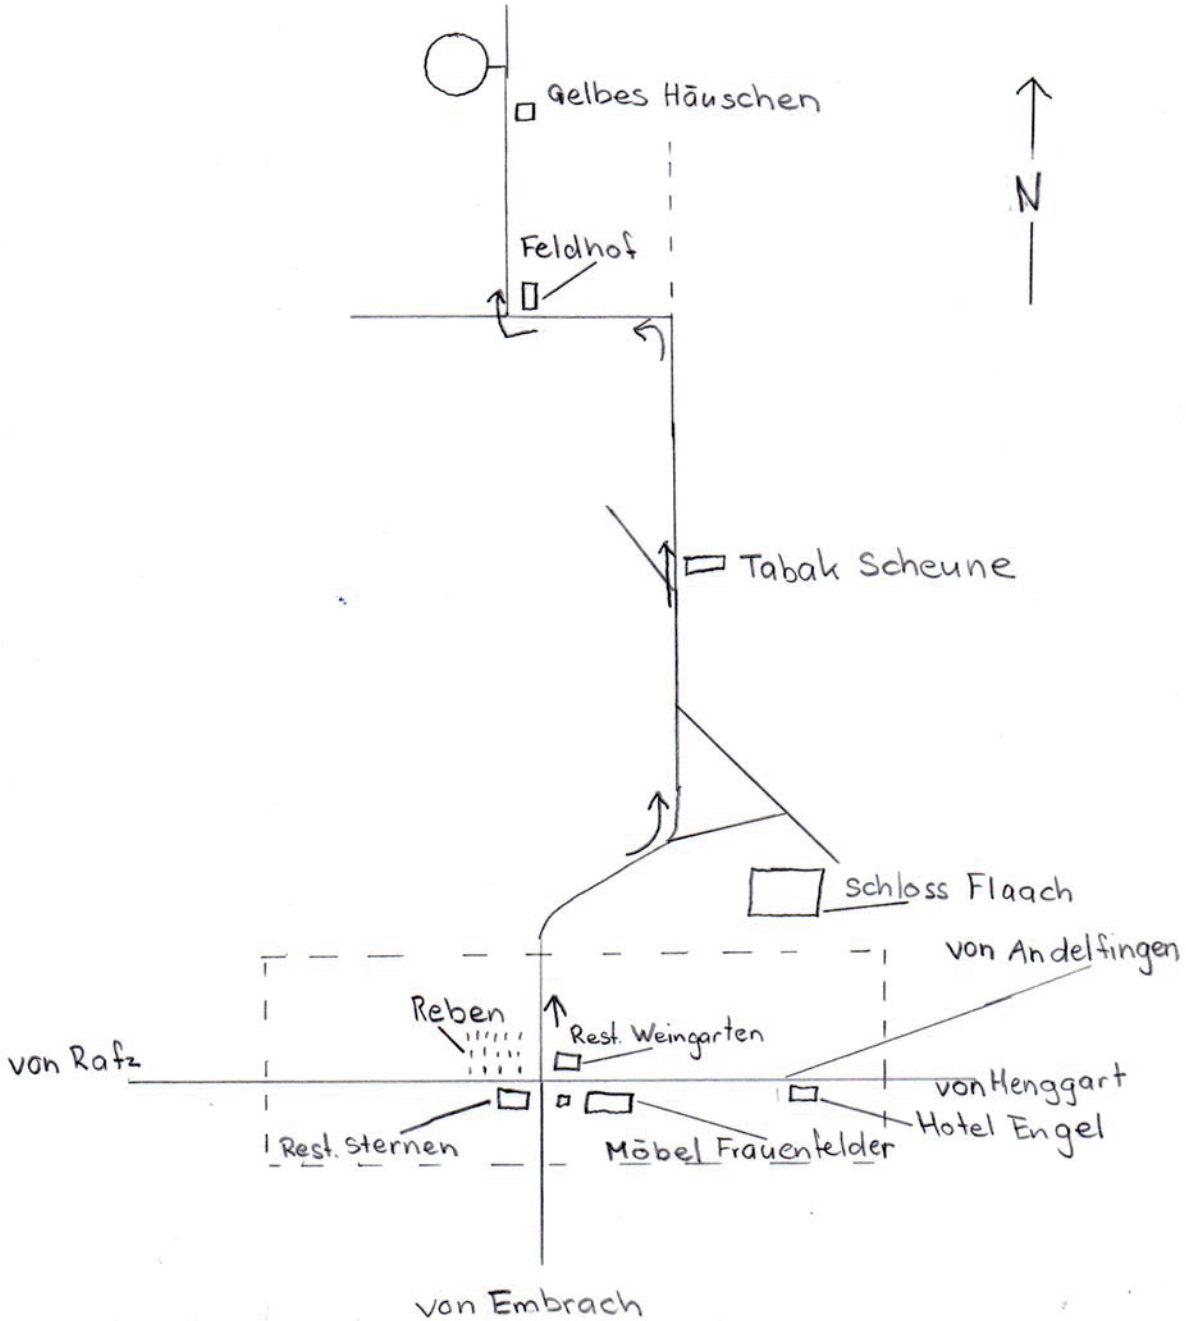 Gelbes Häuschen
N
Feldhof
Tabak Scheune
Schloss Flaach
von Andelfingen
Reben
Rest. Weingarten
von Rafz
von Henggart
Hotel Engel
Rest. Sternen
Möbel Frauenfelder
von Embrach